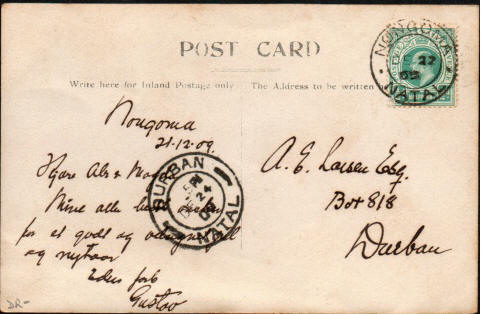 POST CARD
Write here for Inland Postage only
The Address to be written
NONGOMA
22
09
NATAL
Nongoma
21.12.09.
Kjære Alb &
Mine alle
for et godt og
og nytaar
Eders forb
Gustav
DURBAN
24
NATAL
A. E. Larsen Esq.
Box 818
Durban
DR-